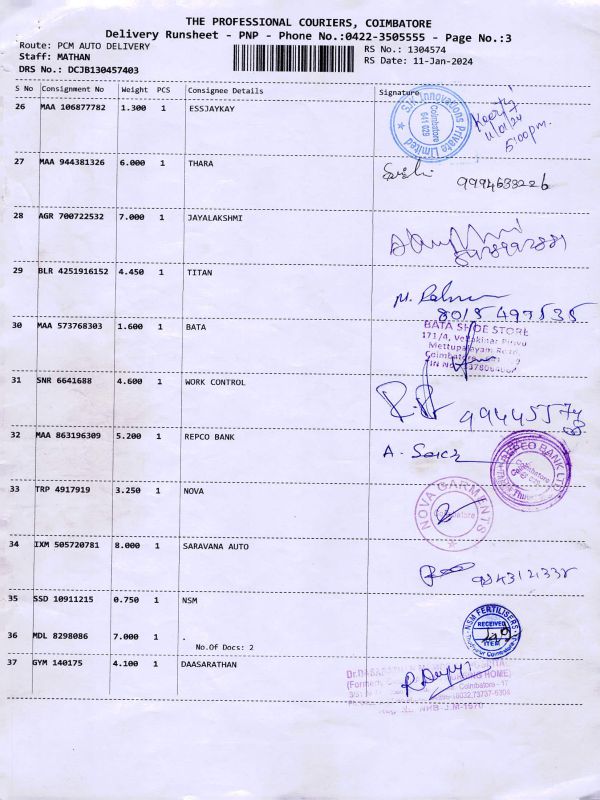 THE PROFESSIONAL COURIERS, COIMBATORE
Delivery Runsheet - PNP - Phone No.:0422-3505555 - Page No.:3
Route: PCM AUTO DELIVERY
RS No.: 1304574
Staff: MATHAN
RS Date: 11-Jan-2024
DRS No.: DCJB130457403
S No Consignment No Weight PCS Consignee Details Signature
26 MAA 106877782 1.300 1 ESSJAYKAY
Innovations Private Limited
Coimbatore
641 029
5:00pm.
27 MAA 944381326 6.000 1 THARA
9994633226
28 AGR 700722532 7.000 1 JAYALAKSHMI
29 BLR 4251916152 4.450 1 TITAN
8015497535
30 MAA 573768303 1.600 1 BATA
BATA SHOE STORE
171/4,
Mettupalayam Road
Coimbatore
31 SNR 6641688 4.600 1 WORK CONTROL
32 MAA 863196309 5.200 1 REPCO BANK
A.
REPCO BANK LTD
Coimbatore
33 TRP 4917919 3.250 1 NOVA
NOVA GARMENTS
Coimbatore
34 IXM 505720781 8.000 1 SARAVANA AUTO
35 SSD 10911215 0.750 1 NSM
NSM FERTILISERS
RECEIVED
36 MDL 8298086 7.000 1 .
No.Of Docs: 2
37 GYM 140175 4.100 1 DAASARATHAN
HOME)
Coimbatore - 17